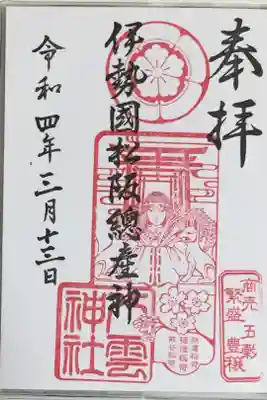 奉拝
伊勢國松阪總產神
令和四年三月十三日
八雲神社
五穀豊穣
商売繁盛